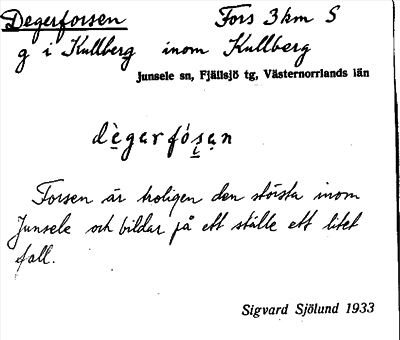 Degerforsen Fors 3 km S
g i Kullberg inom Kullberg
Junsele sn, Fjällsjö tg, Västernorrlands län
dè̱gərfó̱s̱ən
Forsen är troligen den största inom
Junsele och bildar på ett ställe ett litet
fall.
Sigvard Sjölund 1933